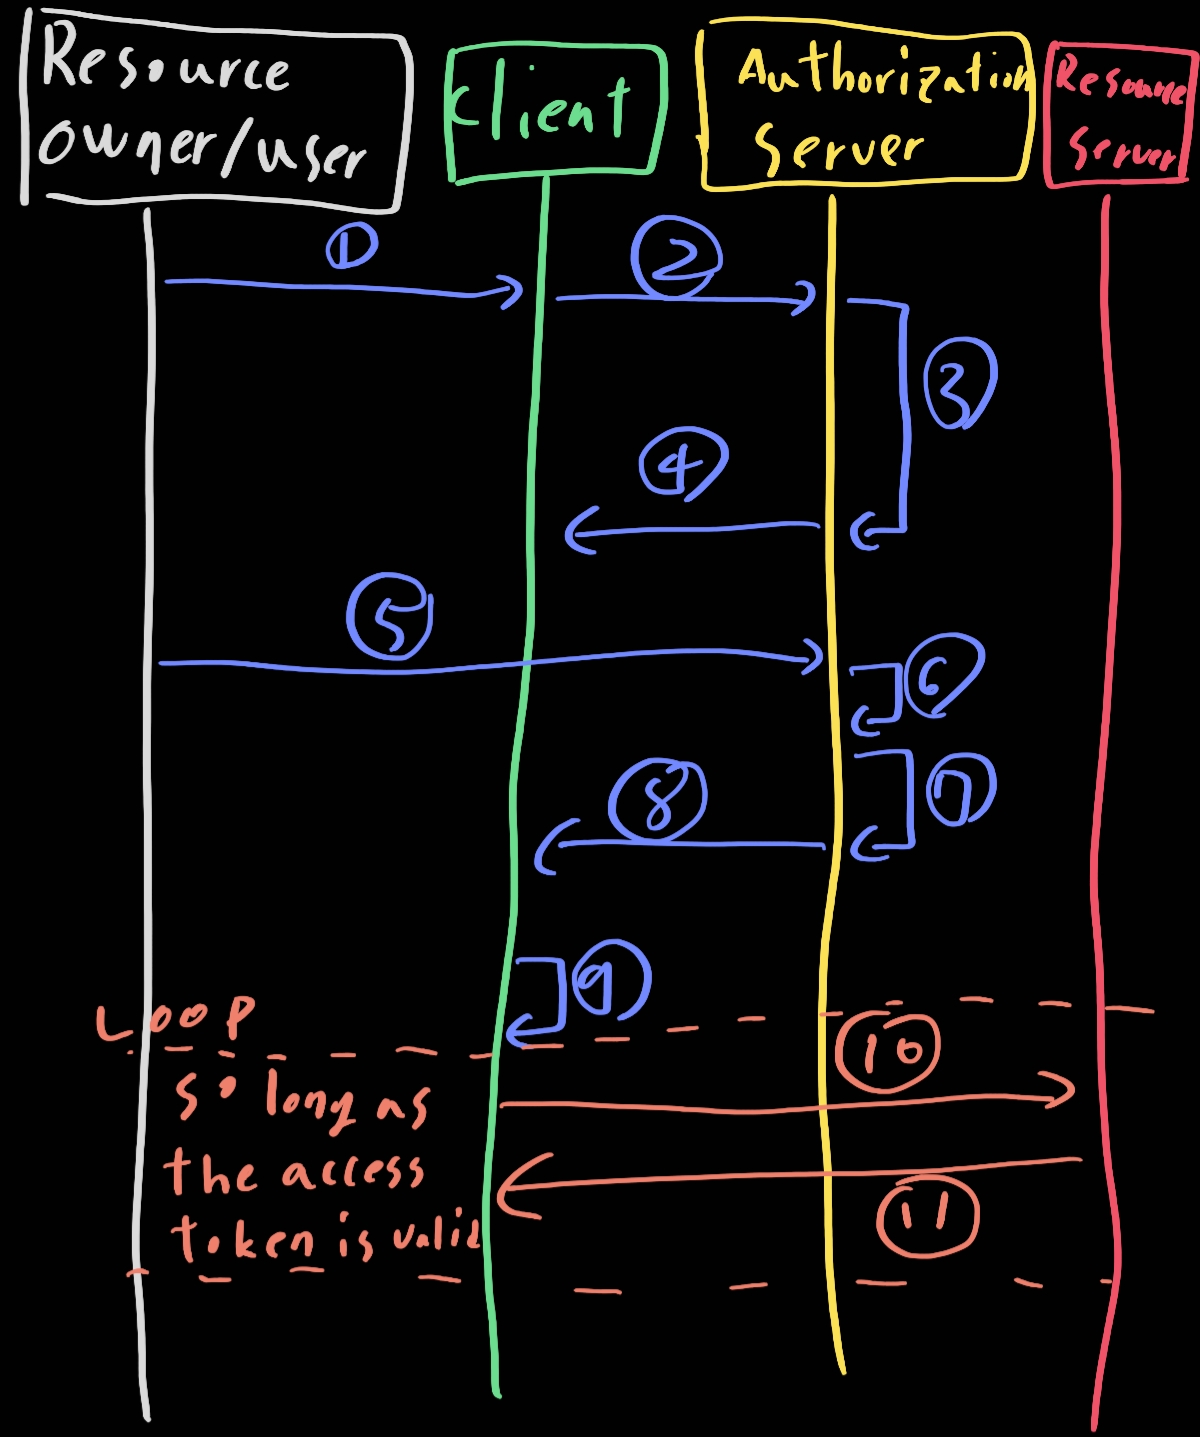 Resource
owner/user
client
Authorization
Server
Resource
Server
1
2
3
4
5
6
7
8
9
Loop
10
so long as
the access
token is valid
11